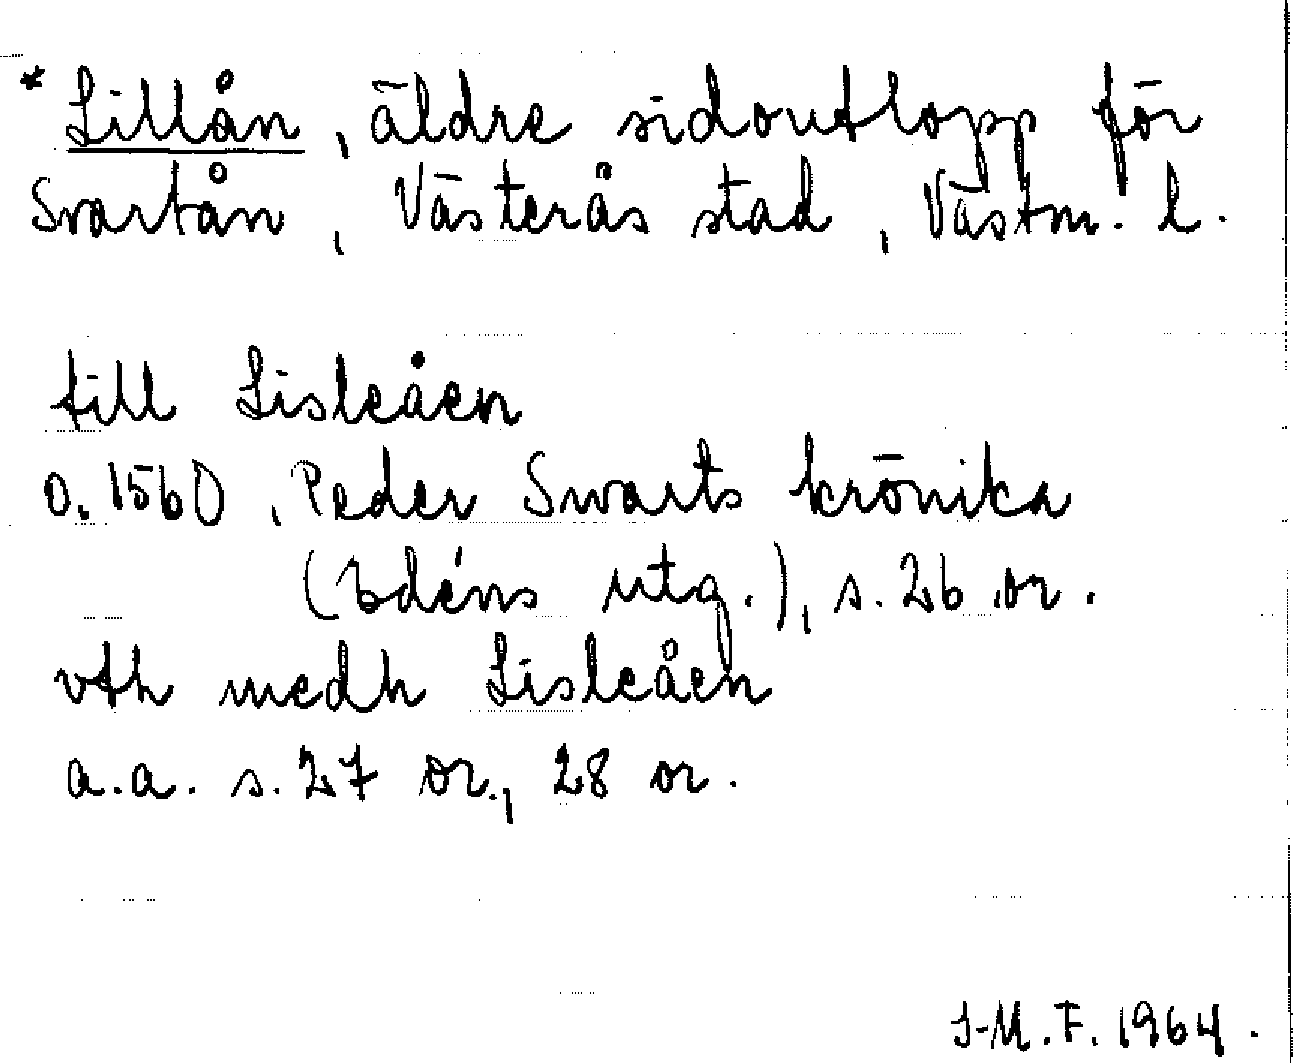 * Lillån, äldre sidoutlopp för
Svartån, Västerås stad, Västm. l.
till Lisleåen
o. 1560, Peder Swarts krönika
(Edéns utg.), s. 26 or.
vth medh Lisleåen
a.a. s. 27 or., 28 or.
I-M.F. 1964.